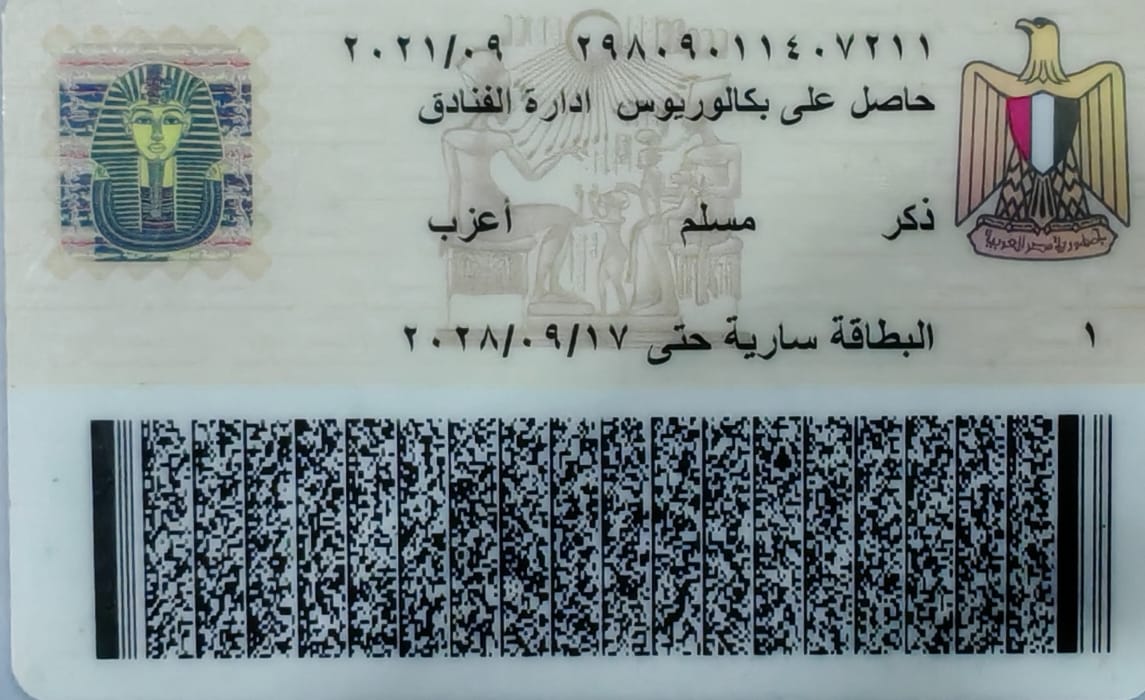 ٢٩٨٠٩٠١١٤٠٧٢١١ ٢٠٢١/٠٩
حاصل على بكالوريوس ادارة الفنادق
ذكر مسلم أعزب
جمهورية مصر العربية
١ البطاقة سارية حتى ٢٠٢٨/٠٩/١٧